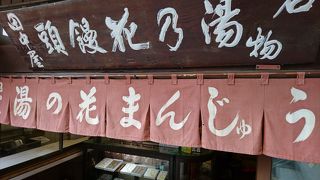 名物
湯乃花饅頭
田中屋
湯の花まんじゅう